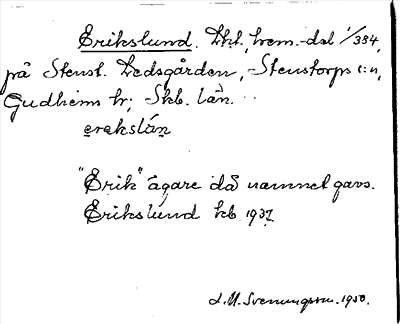 Erikslund. Lht, hem.-del 1/384,
på Stenst. Ledsgården, Stenstorps s:n,
Gudhems hr; Skb. län.
erekslún
"Erik" ägare då namnet gavs.
Erikslund kb 1937
L.M. Svenungsson. 1950.